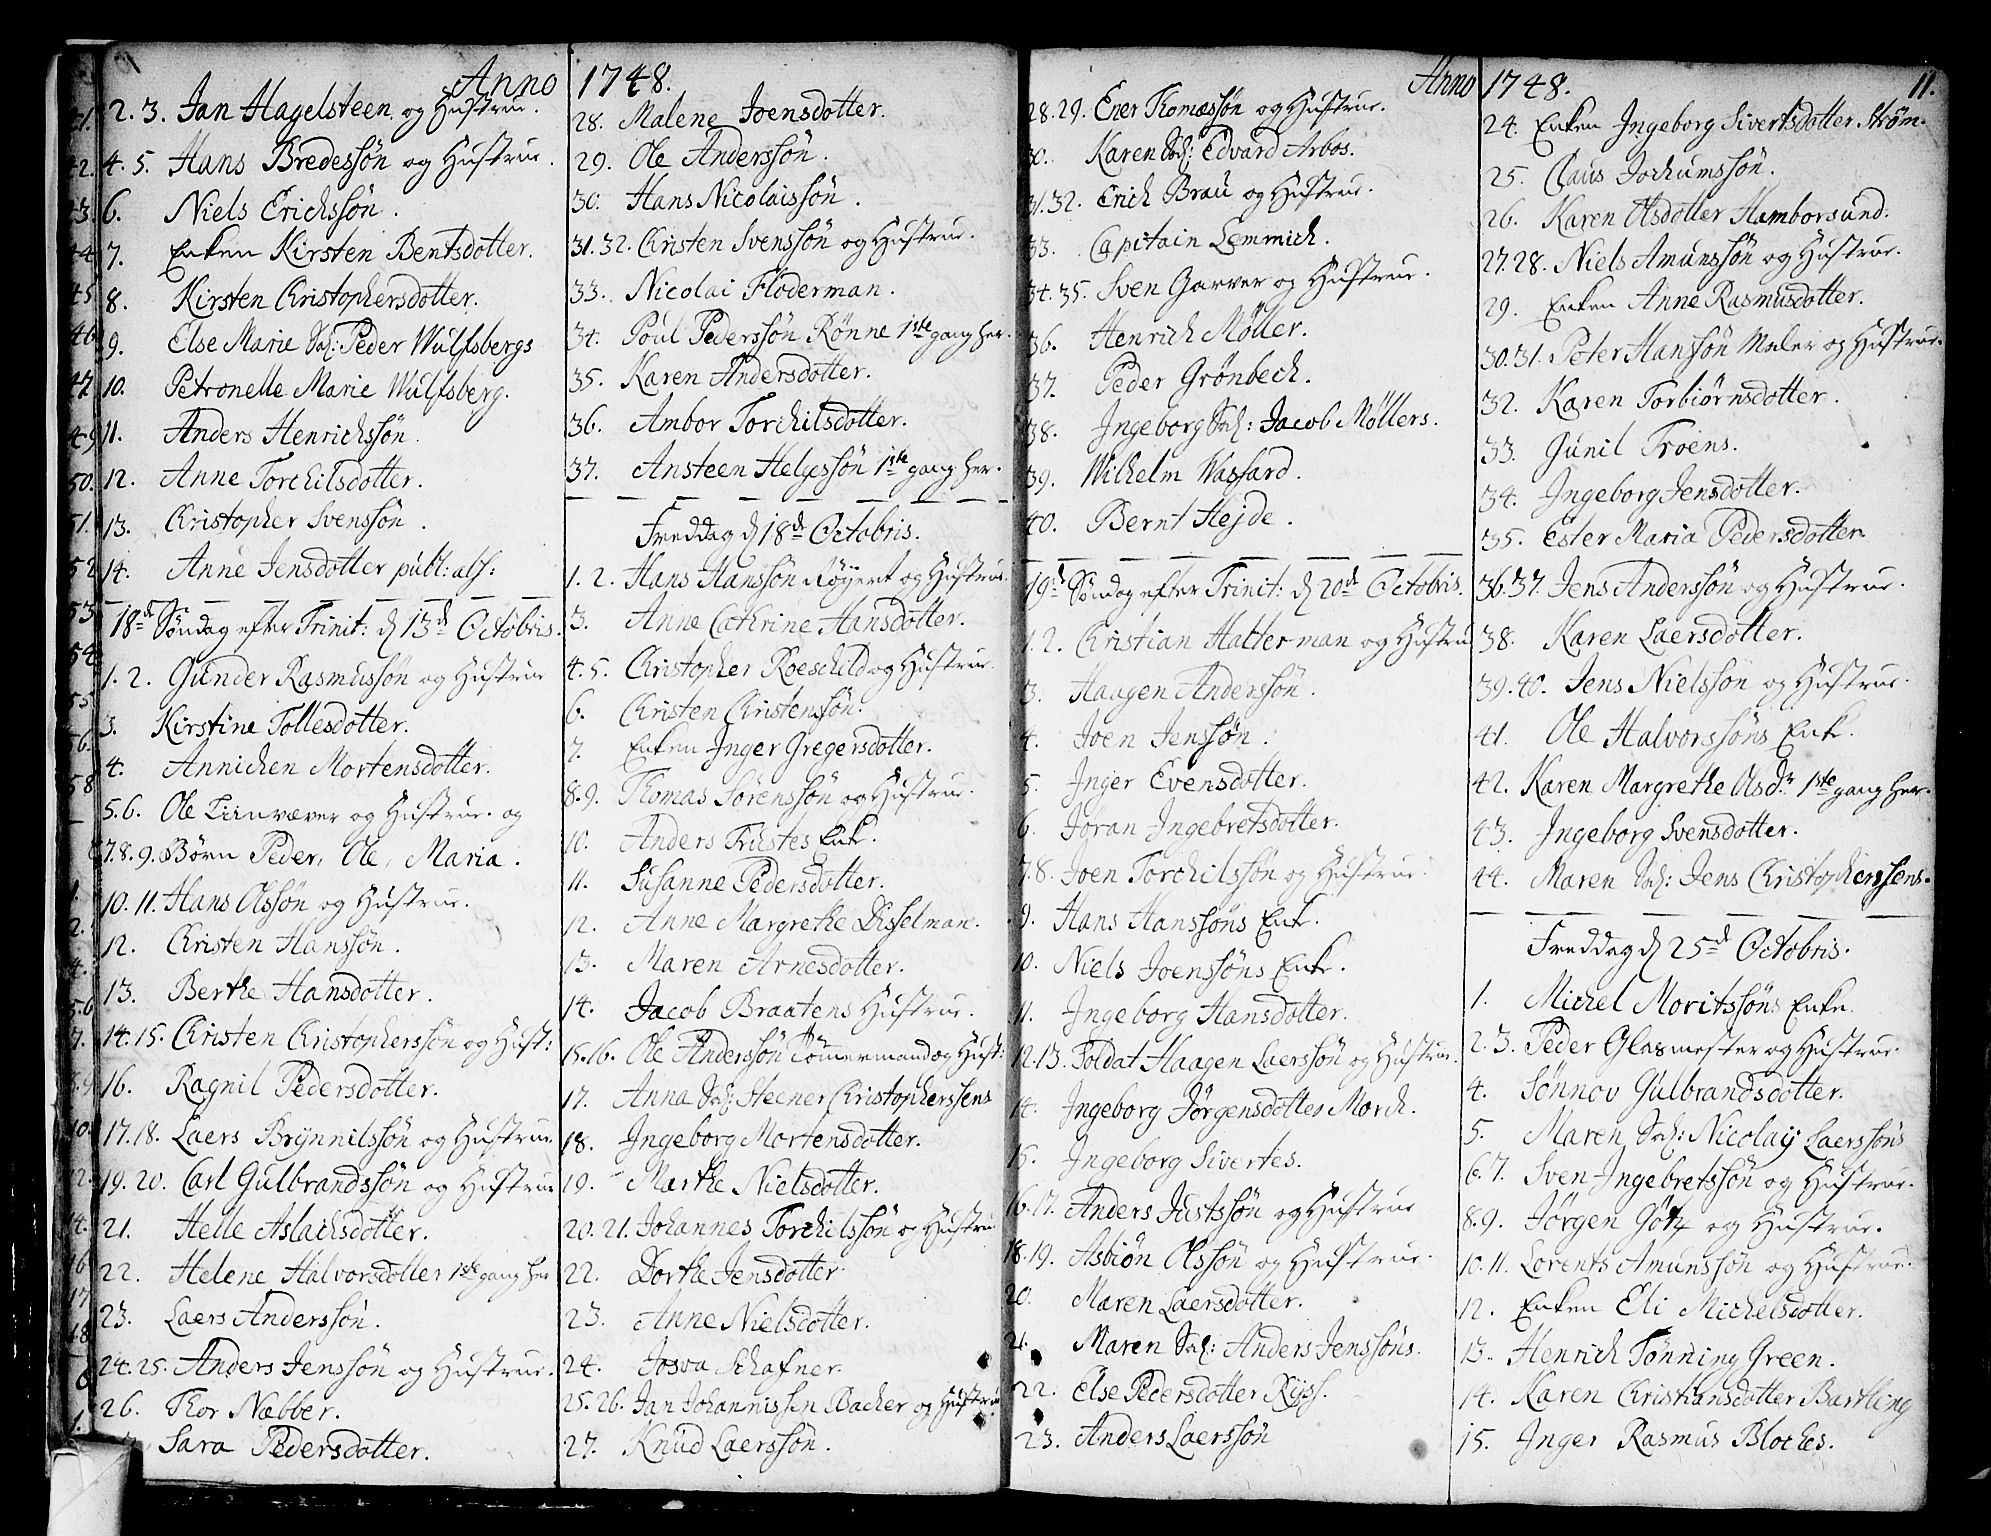 Anno 1748.
2. 3. Jan Hagelsteen og Hustrue.
4. 5. Hans Bredessøn og Hustrue.
6. Niels Erichssøn.
7. Enken Kirsten Bentsdotter.
8. Kirsten Christophersdotter.
9. Else Marie Sal: Peder Wulfsbergs
10. Petronelle Marie Wulfsberg.
11. Anders Henrichssøn.
12. Anne Torchilsdotter.
13. Christopher Svenssøn.
14. Anne Jensdotter publ: abs:
18de Søndag efter Trinit: d 13de Octobris.
1. 2. Gunder Rasmussøn og Hustrue
3. Kirstine Tollesdotter.
4. Annichen Mortensdotter.
5. 6. Ole Linnvæver og Hustrue. og
7. 8. 9. Børn Peder, Ole, Maria.
10. 11. Hans Olssøn og Hustrue.
12. Christen Hanssøn.
13. Berthe Hansdotter.
14. 15. Christen Christopherssøn og Hust:
16. Ragnil Pedersdotter.
17. 18. Laers Brynnilssøn og Hustrue.
19. 20. Carl Gulbrandssøn og Hustrue
21. Helle Aslachsdotter.
22. Helene Halvorsdotter 1ste gang her
23. Laers Anderssøn.
24. 25. Anders Jenssøn og Hustrue.
26. Thor Næbber.
Sara Pedersdotter.
28. Malene Joensdotter.
29. Ole Anderssøn.
30. Hans Nicolaissøn.
31. 32. Christen Svenssøn og Hustrue.
33. Nicolai Floderman.
34. Poul Pederssøn Rønne 1ste gang her.
35. Karen Andersdotter.
36. Ambor Torchilsdotter.
37. Ansteen Helgessøn 1ste gang her.
Freddag d 18de Octobris.
1. 2. Hans Hanssøn Røyert og Hustrue.
3. Anne Cathrine Hansdotter.
4. 5. Christopher Roeschild og Hustrue.
6. Christen Christenssøn.
7. Enken Inger Gregersdotter.
8. 9. Thomas Sørenssøn og Hustrue.
10. Anders Trustes Enk.
11. Susanne Pedersdotter.
12. Anne Margrethe Disselman.
13. Maren Arnesdotter.
14. Jacob Braatens Hustrue.
15. 16. Ole Anderssøn Tømermand og Hust:
17. Anna Sal: Steener Christopherssens
18. Ingeborg Mortensdotter.
19. Marthe Nielsdotter.
20. 21. Johannes Torchilssøn og Hustru
22. Dorthe Jensdotter.
23. Anne Nielsdotter.
24. Josva Schafner.
25. 26. Jan Johannissen Bacher og Hustrue
27. Knud Laerssøn.
Anno 1748. 11.
28. 29. Ever Thomæssøn og Hustrue.
30. Karen Sal: Edvard Arbos.
31. 32. Erich Brau og Hustrue.
33. Capitain Lemmich.
34. 35. Sven Garver og Hustrue.
36. Henrich Møller.
37. Peder Grønbech.
38. Ingeborg Sal: Jacob Møllers.
39. Wilhelm Wasfard.
40. Bernt Hejde.
19de Søndag efter Trinit: d 20de Octobris.
1. 2. Christian Halterman og Hustru
3. Haagen Anderssøn.
4. Joen Jenssøn.
5. Inger Evensdotter.
6. Jøran Ingebretsdotter.
7. 8. Joen Torchilssøn og Hustrue.
9. Hans Hanssøns Enk.
10. Niels Joenssøns Enke.
11. Ingeborg Hansdotter.
12. 13. Soldat Haagen Laerssøn og Hustrue.
14. Ingeborg Jørgensdotter Morch.
15. Ingeborg Sivertes.
16. 17. Anders Justssøn og Hustrue
18. 19. Asbiøn Olssøn og Hustrue.
20. Maren Laersdotter.
21. Maren Sal: Anders Jenssøns.
22. Else Pedersdotter Ryss.
23. Anders Laerssøn
24. Enken Ingeborg Sivertsdotter Strøm.
25. Claus Jochumssøn.
26. Karen Olsdotter Hamborsund.
27. 28. Niels Amunssøn og Hustrue.
29. Enken Anne Rasmusdotter.
30. 31. Peter Hanssøn Maler og Hustrue.
32. Karen Torbiørnsdotter.
33. Gunil Troens.
34. Ingeborg Jensdotter.
35. Ester Maria Pedersdotter.
36. 37. Jens Anderssøn og Hustrue.
38. Karen Laersdotter.
39. 40. Jens Nielssøn og Hustrue.
41. Ole Halvorssøns Enk.
42. Karen Margrethe Olsdr 1ste gang her.
43. Ingeborg Svensdotter.
44. Maren Sal: Jens Christopherssens.
Freddag d 25de Octobris.
1. Michel Moritssøns Enke.
2. 3. Peder Glasmester og Hustrue.
4. Sønnov Gulbrandsdotter.
5. Maren Sal: Nicolaij Laerssøns
6. 7. Sven Ingebretssøn og Hustrue.
8. 9. Jørgen Gøtz og Hustrue.
10. 11. Lorents Amunssøn og Hustrue.
12. Enken Eli Michelsdotter.
13. Henrich Tønning Green.
14. Karen Christiansdotter Bartling
15. Inger Rasmus Bloches.